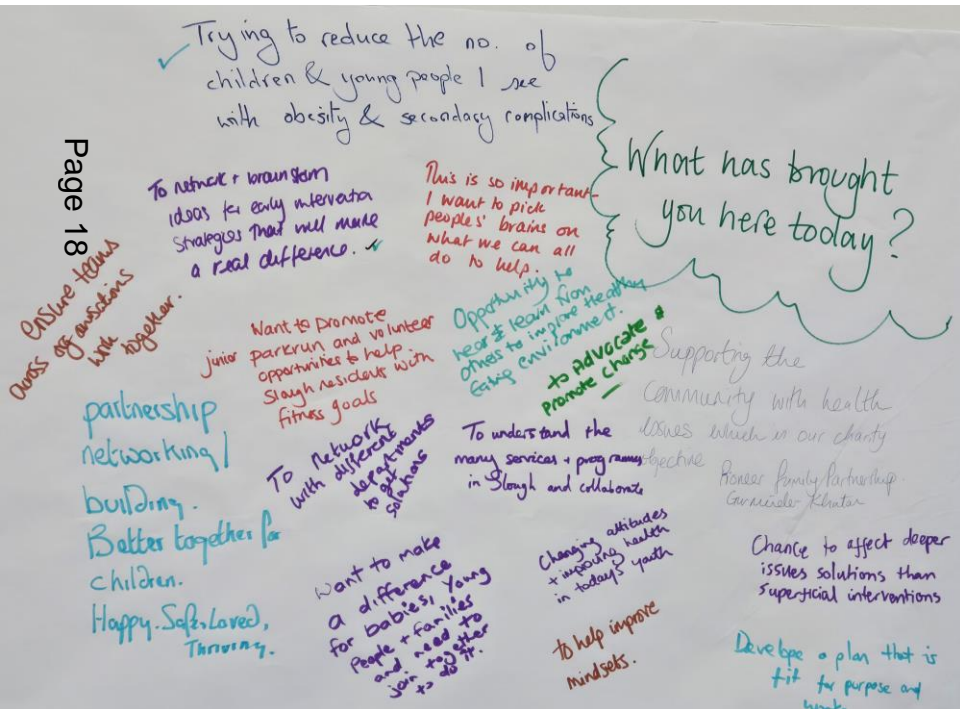 Trying to reduce the no. of
children & young people I see
with obesity & secondary complications
What has brought
you here today?
Page 18
To network + brainstorm
ideas for early intervention
strategies that will make
a real difference.
This is so important-
I want to pick
people's brains on
what we can all
do to help.
ensure teams
across organisations
with
together.
Want to promote
junior parkrun and volunteer
opportunities to help
Slough residents with
fitness goals
Opportunity to
hear & learn from
others to improve Healthy
Eating environment.
to ADVOCATE &
promote change
Supporting the
community with health
issues which is our charity
objective
Pioneer Family Partnership
partnership
networking/
building.
Better together for
children.
Happy. Safe. Loved,
Thriving.
To Network
with different
departments
to get
solutions
To understand the
many services + programmes
in Slough and collaborate
Want to make
a difference
for babies, young
people + families
and need to
join together
to do it.
Changing attitudes
+ improving health
in today's youth
to help improve
mindsets.
Chance to affect deeper
issues solutions than
superficial interventions
Develope a plan that is
fit for purpose and